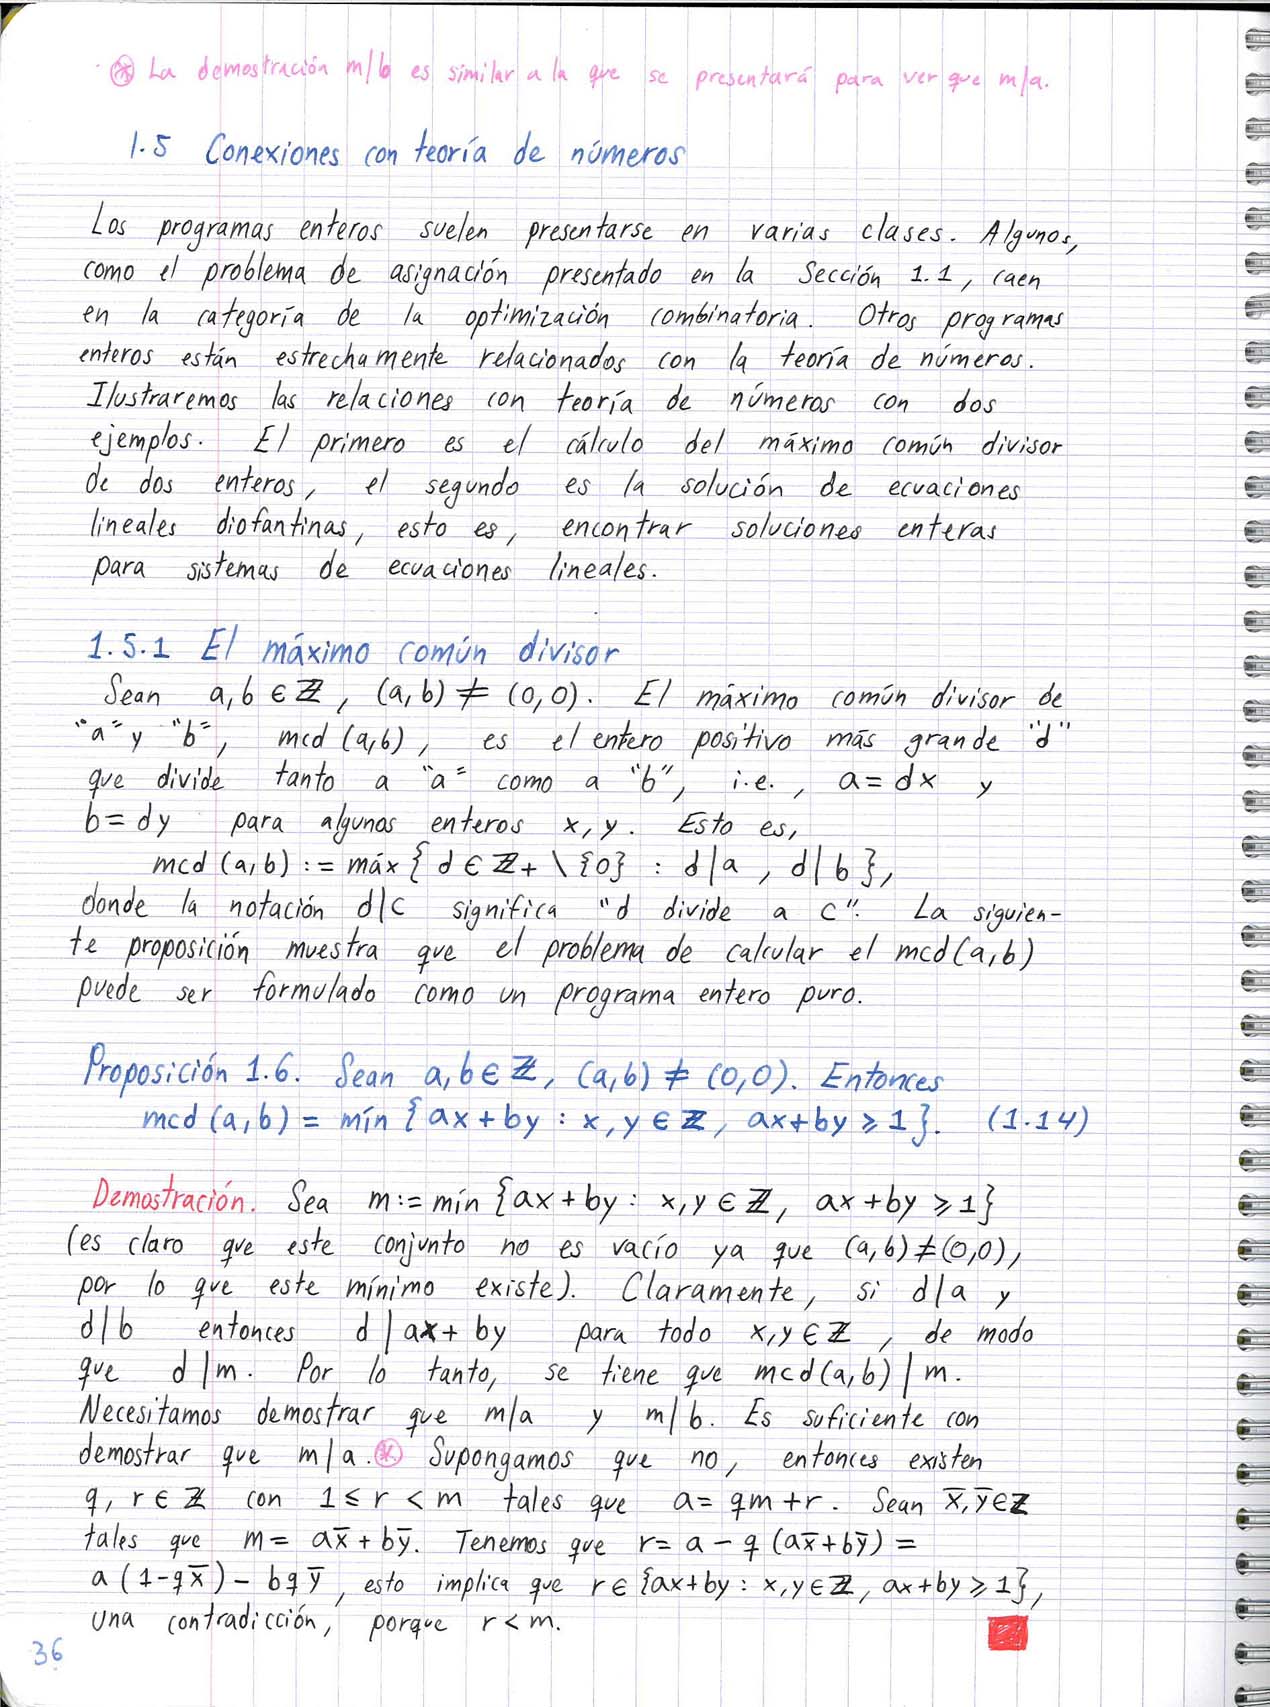 ⊛ La demostración m/b es similar a la que se presentará para ver que m/a.
1.5 Conexiones con teoría de números
Los programas enteros suelen presentarse en varias clases. Algunos,
como el problema de asignación presentado en la Sección 1.1, caen
en la categoría de la optimización combinatoria. Otros programas
enteros están estrechamente relacionados con la teoría de números.
Ilustraremos las relaciones con teoría de números con dos
ejemplos. El primero es el cálculo del máximo común divisor
de dos enteros, el segundo es la solución de ecuaciones
lineales diofantinas, esto es, encontrar soluciones enteras
para sistemas de ecuaciones lineales.
1.5.1 El máximo común divisor
Sean a,b ∈ ℤ, (a,b) ≠ (0,0). El máximo común divisor de
"a" y "b", mcd (a,b), es el entero positivo más grande "d"
que divide tanto a "a" como a "b", i.e., a = dx y
b = dy para algunos enteros x, y. Esto es,
mcd (a,b) := máx { d ∈ ℤ+ \ {0} : d|a , d|b },
donde la notación d|c significa "d divide a c". La siguien-
te proposición muestra que el problema de calcular el mcd(a,b)
puede ser formulado como un programa entero puro.
Proposición 1.6. Sean a,b ∈ ℤ, (a,b) ≠ (0,0). Entonces
mcd (a,b) = mín { ax + by : x, y ∈ ℤ, ax + by ⩾ 1 }. (1.14)
Demostración. Sea m := mín { ax + by : x, y ∈ ℤ, ax + by ⩾ 1 }
(es claro que este conjunto no es vacío ya que (a,b) ≠ (0,0),
por lo que este mínimo existe). Claramente, si d|a y
d|b entonces d | ax + by para todo x, y ∈ ℤ, de modo
que d|m. Por lo tanto, se tiene que mcd(a,b) | m.
Necesitamos demostrar que m/a y m/b. Es suficiente con
demostrar que m/a. ⊛ Supongamos que no, entonces existen
q, r ∈ ℤ con 1 ≤ r < m tales que a = qm + r. Sean x̄, ȳ ∈ ℤ
tales que m = ax̄ + bȳ. Tenemos que r = a - q (ax̄ + bȳ) =
a (1 - qx̄) - bqȳ, esto implica que r ∈ {ax + by : x, y ∈ ℤ, ax + by ⩾ 1},
una contradicción, porque r < m.
36